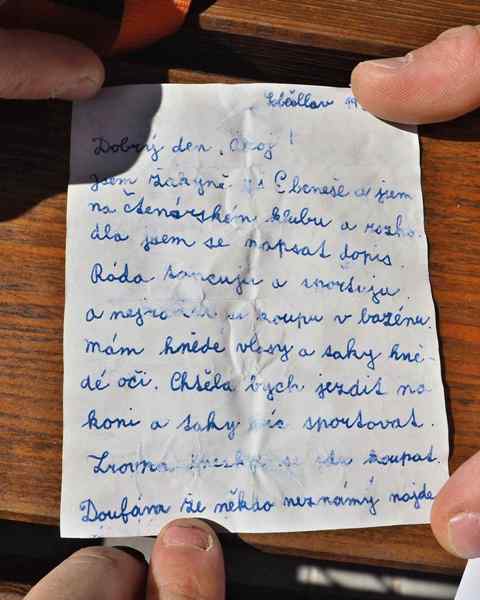 Dobrý den, Ahoj!
jsem žákyně zš E beneše a jsem
na čtenářském klubu a rozho-
dla jsem se napsat dopis.
Ráda tancuju a sportuju.
a nejradši se koupu v bazénu.
mám hnědé vlasy a taky hně-
dé oči. Chtěla bych jezdit na
koni a taky víc sportovat.
Zrovna dneska se jdu koupat.
Doufám že někdo neznámý najde